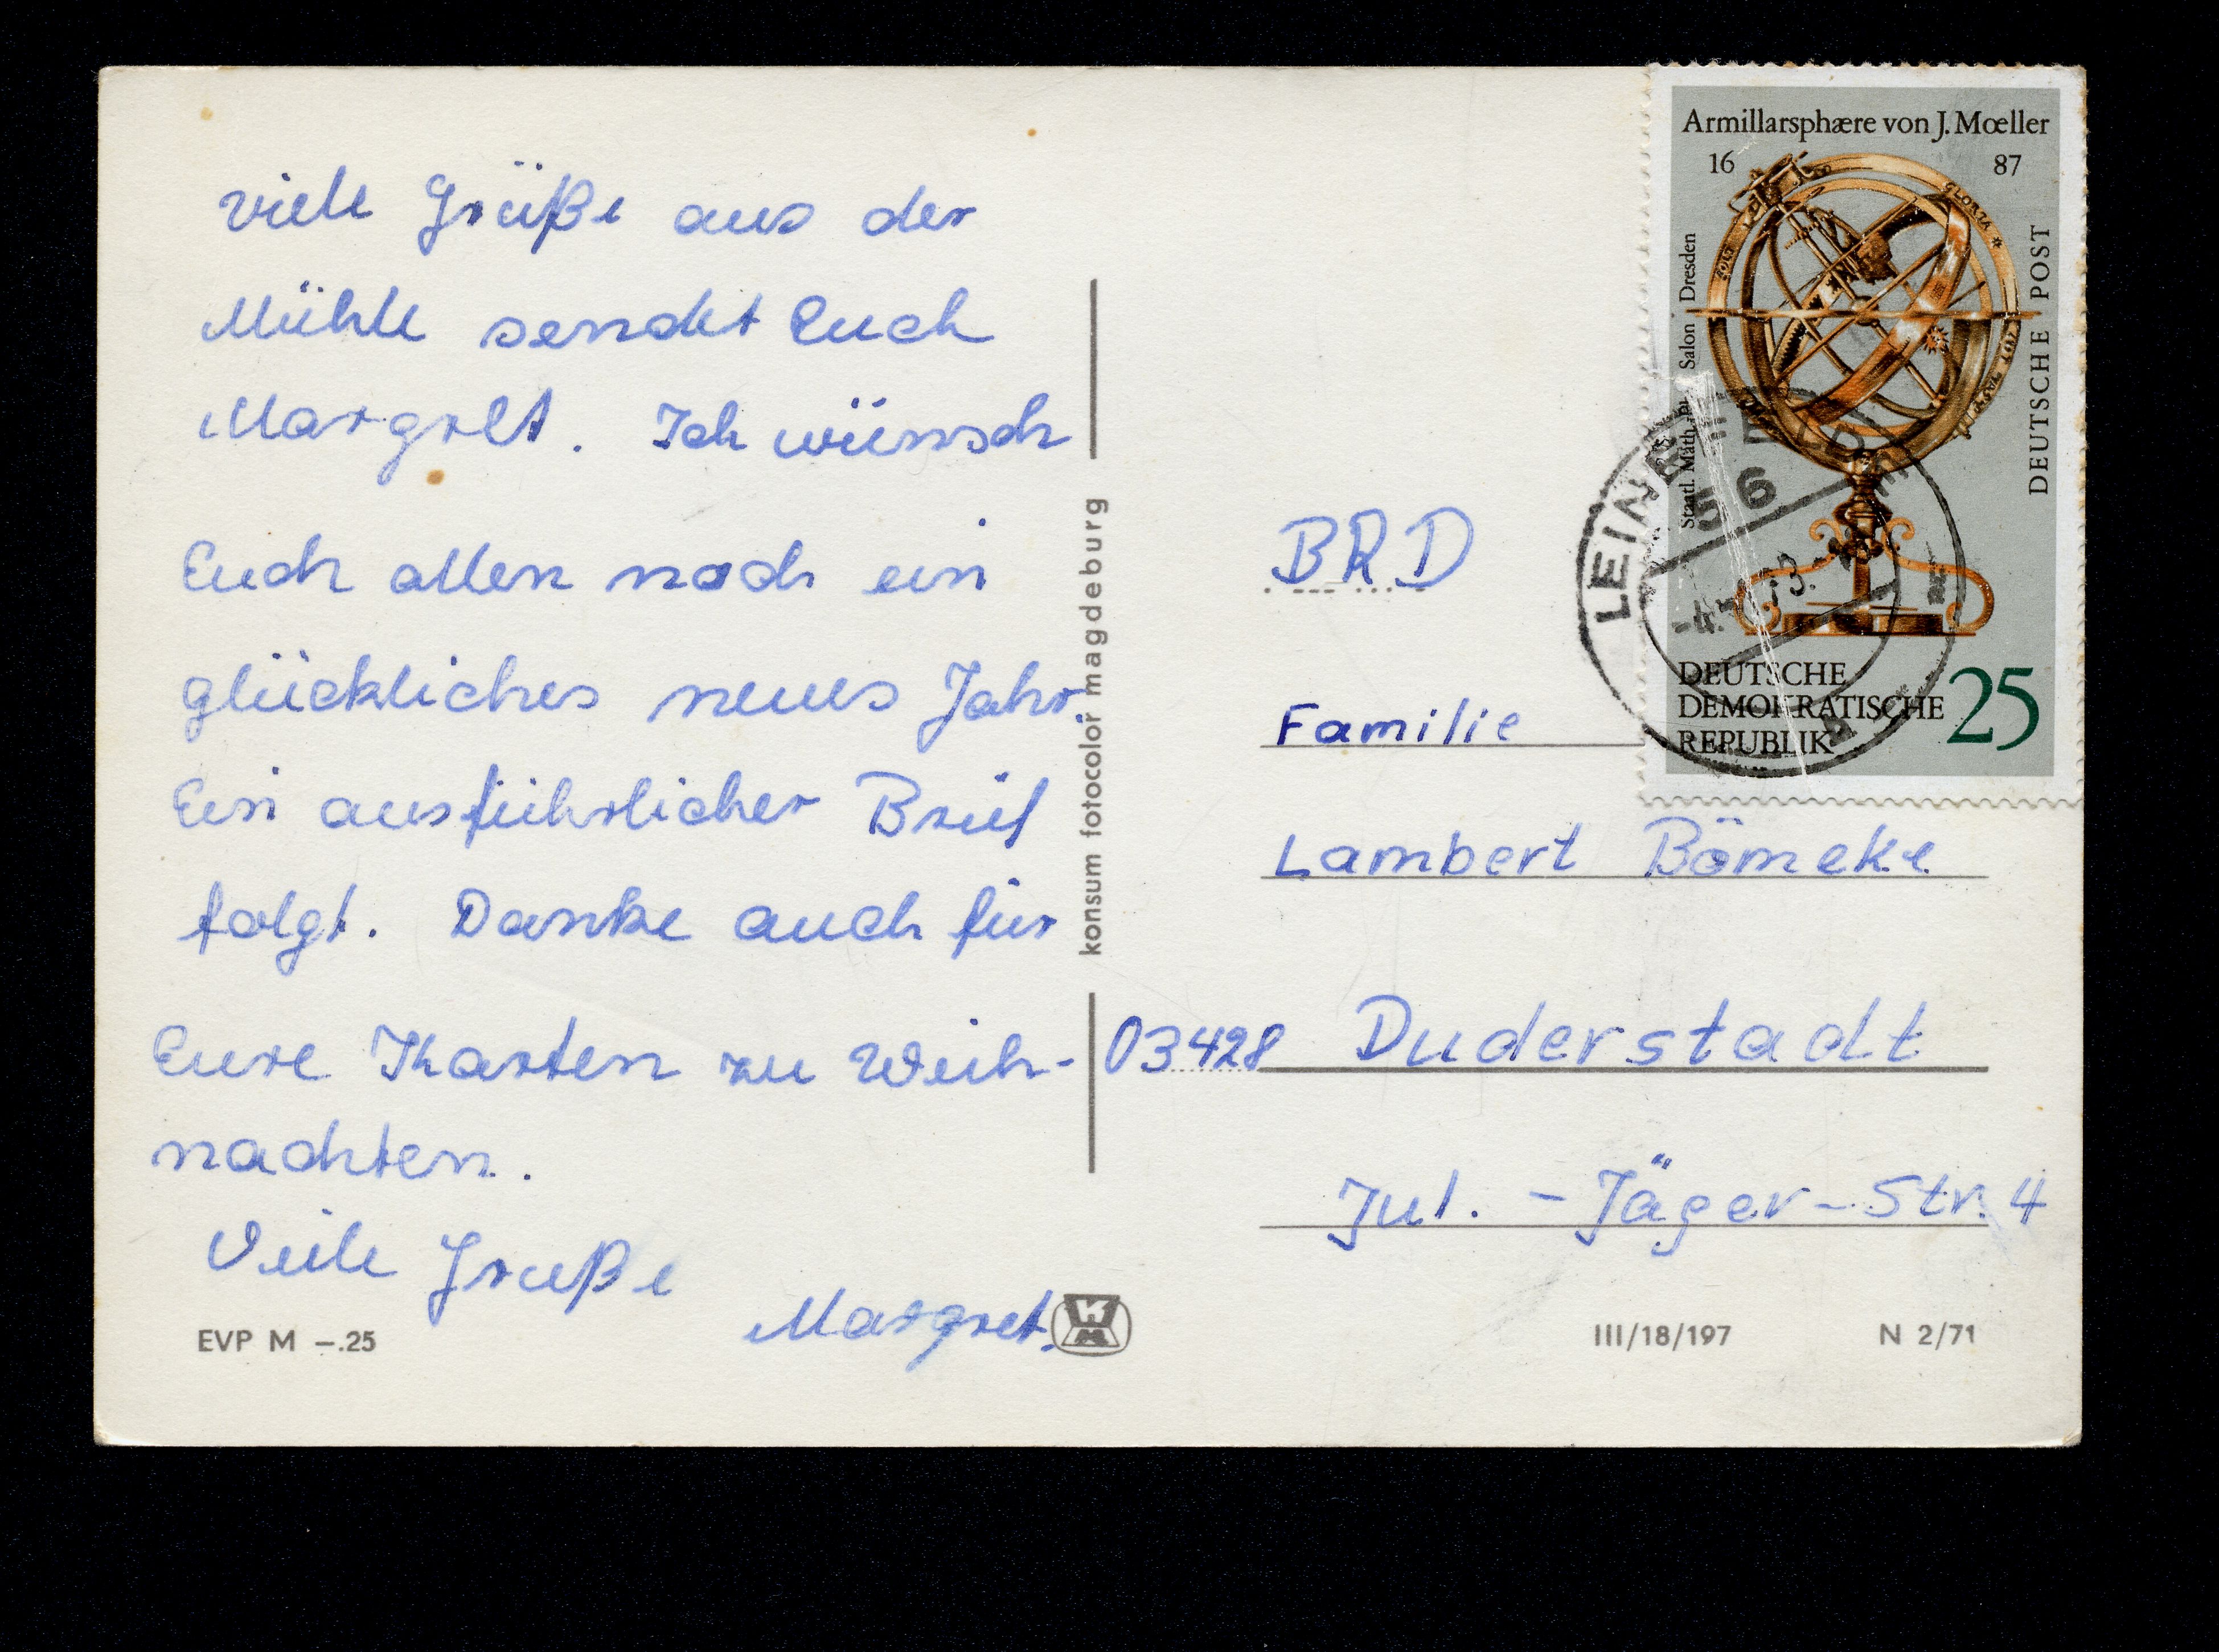 viele Grüße aus der
Mühle sendet Euch
Margret. Ich wünsch
Euch allen noch ein
glückliches neues Jahr.
Ein ausführlicher Brief
folgt. Danke auch für
Eure Karten zu Weih-
nachten.
Viele Gruße
Margret.
EVP M –.25
konsum fotocolor magdeburg
KM
Armillarsphære von J. Mœller
16 87
Staatl. Math. Salon Dresden
DEUTSCHE POST
DEUTSCHE
DEMOKRATISCHE
REPUBLIK
25
LEINEFELDE
56
BRD
Familie
Lambert Bömeke
03428 Duderstadt
Jul. - Jäger - Str. 4
III/18/197 N 2/71